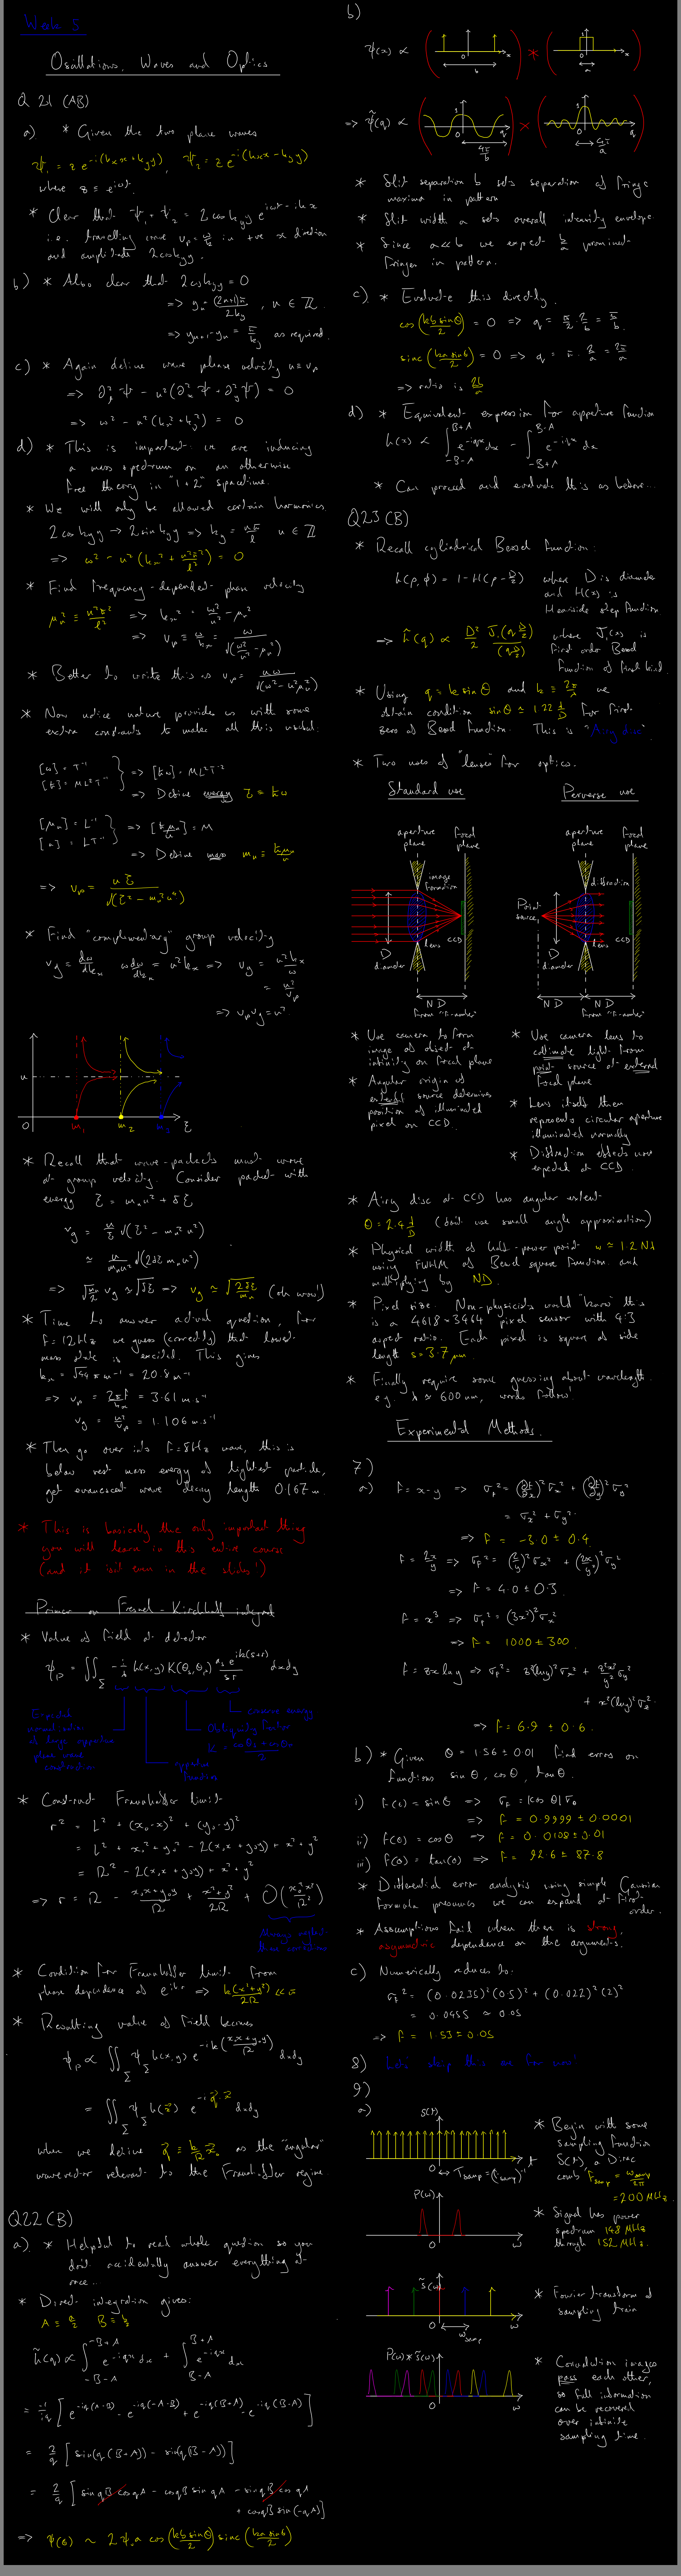 Week 5
Oscillations, Waves and Optics
Q 21 (AB)
a) * Given the two plane waves
ψ₁ = z e^{-i(kₓx+k_y y)}, ψ₂ = z e^{-i(kₓx-k_y y)}
where z = e^{iωt}.
* Clear that ψ₁+ψ₂ = 2cos k_y y e^{iωt-ikₓx}
i.e. travelling wave v_p = ω/kₓ in +ve x direction
and amplitude 2cos k_y y.
b) * Also clear that 2cos k_y y = 0
=> yₙ = (2n+1)π/2k_y, n ∈ ℤ
=> yₙ₊₁-yₙ = π/k_y as required.
c) * Again define wave phase velocity u=v_p
=> ∂ₜ²ψ - u²(∂ₓ²ψ + ∂_y²ψ) = 0
=> ω² - u²(kₓ²+k_y²) = 0
d) * This is important: we are inducing
a mass spectrum on an otherwise
free theory in "1+2" spacetime.
* We will only be allowed certain harmonics
2cos k_y y → 2sin k_y y => k_y = nπ/l n ∈ ℤ
=> ω² - u²(kₓ² + n²π²/l²) = 0
* Find frequency-dependent phase velocity
μₙ² ≡ n²π²/l² => kₓ² = ω²/u² - μₙ²
=> v_p ≡ ω/kₓ = ω/√(ω²/u² - μₙ²)
* Better to write this as v_p = uω/√(ω²-u²μₙ²)
* Now notice nature provides us with some
extra constants to make all this natural:
[ω] = T⁻¹
[ħ] = ML²T⁻¹ } => [ħω] = ML²T⁻²
=> Define energy ℰ = ħω
[μₙ] = L⁻¹
[u] = LT⁻¹ } => [ħμₙ/u] = M
=> Define mass mₙ = ħμₙ/u
=> v_p = uℰ/√(ℰ²-mₙ²u⁴)
* Find "complementary" group velocity
v_g = dω/dkₓ ω dω/dkₓ = u²kₓ => v_g = u²kₓ/ω
= u²/v_p
=> v_p v_g = u².
u
0 m₁ m₂ m₃ ℰ
* Recall that wave-packets must move
at group velocity. Consider packet with
energy ℰ = mₙu² + δℰ
v_g = u/ℰ √(ℰ²-mₙ²u⁴)
≈ u/mₙu² √(2δℰ mₙu²)
=> √(mₙ/2) v_g ≈ √δℰ => v_g ≈ √(2δℰ/mₙ) (oh wow!)
* Time to answer actual question, for
f=12Hz we guess (correctly) that lowest
mass state is excited. This gives
kₓ = √44 π m⁻¹ = 20.8 m⁻¹
=> v_p = 2πf/kₓ = 3.61 m s⁻¹
v_g = u²/v_p = 1.106 m s⁻¹
* Then go over into f=8Hz wave, this is
below rest mass energy of lightest particle,
get evanescent wave decay length 0.167 m.
* This is basically the only important thing
you will learn in this entire course
(and it isn't even in the slides!)
Primer on Fresnel-Kirchhoff integral
* Value of field at detector
ψ_p = ∬_Σ -i/λ h(x,y) K(θₛ,θᵣ) aₛe^{ik(s+r)}/sr dxdy
Expected
normalisation
of large aperture
plane wave
construction
aperture
function
Obliquity factor
K = (cosθₛ+cosθᵣ)/2
conserve energy
* Construct Fraunhofer limit
r² = L² + (x₀-x)² + (y₀-y)²
= L² + x₀² + y₀² - 2(x₀x + y₀y) + x² + y²
= R² - 2(x₀x + y₀y) + x² + y²
=> r = R - (x₀x+y₀y)/R + (x²+y²)/2R + O(x₀²x²/R³)
Always neglect
these corrections
* Condition for Fraunhofer limit from
phase dependence of e^{ikr} => k(x²+y²)/2R << π
* Resulting value of field becomes
ψ_p ∝ ∬_Σ ψ_Σ h(x,y) e^{-ik((x₀x+y₀y)/R)} dxdy
= ∬_Σ ψ_Σ h(x⃗) e^{-iq⃗·x⃗} dxdy
when we define q⃗ ≡ k/R x⃗₀ as the "angular"
wavevector relevant to the Fraunhoffer regime
Q22 (B)
a) * Helpful to read whole question so you
don't accidentally answer everything at
once...
* Direct integration gives:
A ≡ a/2 B ≡ b/2
h̃(q) ∝ ∫_{-B-A}^{-B+A} e^{-iqx}dx + ∫_{B-A}^{B+A} e^{-iqx}dx
= -1/iq [e^{-iq(A-B)} - e^{-iq(-A-B)} + e^{-iq(B+A)} - e^{-iq(B-A)}]
= 2/q [sin(q(B+A)) - sin(q(B-A))]
= 2/q [sin qB cos qA - cos qB sin qA - sin qB cos qA
+ cos qB sin(-qA)]
=> ψ(θ) ~ 2ψ₀a cos(kb sinθ/2) sinc(ka sinθ/2)
b)
ψ(x) ∝ ( 0 x b ) * ( 1 0 x a )
=> ψ̃(q) ∝ ( 1 0 q 4π/b ) × ( 1 0 q 4π/a )
* Slit separation b sets separation of fringe
maxima in pattern
* Slit width a sets overall intensity envelope
* Since a<<b we expect b/a prominent
fringes in pattern.
c) * Evaluate this directly.
cos(kb sinθ/2) = 0 => q = π/2 · 2/b = π/b
sinc(ka sinθ/2) = 0 => q = π · 2/a = 2π/a
=> ratio is 2b/a
d) * Equivalent expression for apperture function
h(x) ∝ ∫_{-B-A}^{B+A} e^{-iqx}dx - ∫_{-B+A}^{B-A} e^{-iqx}dx
* Can proceed and evaluate this as before...
Q23 (B)
* Recall cylindrical Bessel function:
h(ρ,φ) = 1-H(ρ-D/2) where D is diameter
and H(x) is
Heaviside step function.
=> h̃(q) ∝ D²/2 J₁(qD/2)/(qD/2) where J₁(x) is
first order Bessel
function of first kind.
* Using q = k sinθ and k = 2π/λ we
obtain condition sinθ ≈ 1.22 λ/D for first
zero of Bessel function. This is "Airy disc".
* Two uses of "lenses" for optics.
Standard use
Perverse use
aperture
plane
focal
plane
image
formation
D
diameter
lens
CCD
ND
from "f-number"
aperture
plane
focal
plane
diffraction
Point
source
D
diameter
lens
CCD
ND
ND
from "f-number"
* Use camera to form
image of object at
infinity on focal plane
* Angular origin of
extended source determines
position of illuminated
pixel on CCD.
* Use camera lens to
collimate light from
point source at external
focal plane
* Lens itself then
represents circular aperture
illuminated normally
* Diffraction effects now
expected at CCD
* Airy disc at CCD has angular extent
θ = 2.4 λ/D (don't use small angle approximation)
* Physical width of half-power point w ≈ 1.2 Nλ
using FWHM of Bessel square function and
multiplying by ND.
* Pixel size. Non-physicists would "know" this
is a 4618×3464 pixel sensor with 4:3
aspect ratio. Each pixel is square of side
length s = 3.7 μm.
* Finally require some guessing about wavelength
e.g. λ ≈ 600 nm, words follow!
Experimental Methods.
7)
a) f = x-y => σ_f² = (∂f/∂x)²σₓ² + (∂f/∂y)²σ_y²
= σₓ² + σ_y².
=> f = -3.0 ± 0.4
f = 2x/y => σ_f² = (2/y)²σₓ² + (2x/y²)²σ_y²
=> f = 4.0 ± 0.3.
f = x³ => σ_f² = (3x²)²σₓ²
=> f = 1000 ± 300.
f = zx log y => σ_f² = z²(log y)²σₓ² + z²x²/y² σ_y²
+ x²(log y)²σ_z².
=> f = 6.9 ± 0.6.
b) * Given θ = 1.56 ± 0.01 find errors on
functions sinθ, cosθ, tanθ.
i) f(θ) = sinθ => σ_f = |cosθ|σ_θ
=> f = 0.9999 ± 0.0001
ii) f(θ) = cosθ => f = 0.0108 ± 0.01
iii) f(θ) = tan(θ) => f = 92.6 ± 87.8
* Differential error analysis using simple Gaussian
formula presumes we can expand at first
order.
* Assumptions fail when there is strong,
asymmetric dependence on the arguments.
c) Numerically reduces to:
σ_f² = (0.0235)²(0.5)² + (0.022)²(2)²
= 0.0455 ≈ 0.05
=> f = 1.53 ± 0.05
8) Let's skip this one for now!
9)
a)
S(t)
0 t
T_samp = (f_samp)⁻¹
* Begin with some
sampling function
S(t), a Dirac
comb f_samp = ω_samp/2π
= 200 MHz.
P(ω)
0 ω
* Signal has power
spectrum 148 MHz
through 152 MHz.
S̃(ω)
0 ω
ω_samp
* Fourier transform of
sampling train
P(ω)*S̃(ω)
0 ω
* Convolution images
pass each other,
so full information
can be recovered
over infinite
sampling time.